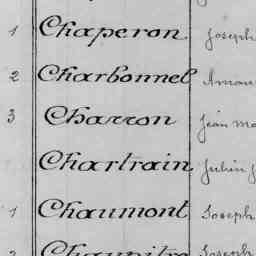 1 Chaperon Joseph
2 Charbonnel Aman
3 Charron Jean Ma
Chartrain Julien J
1 Chaumont Joseph
2 Chaupitre Joseph